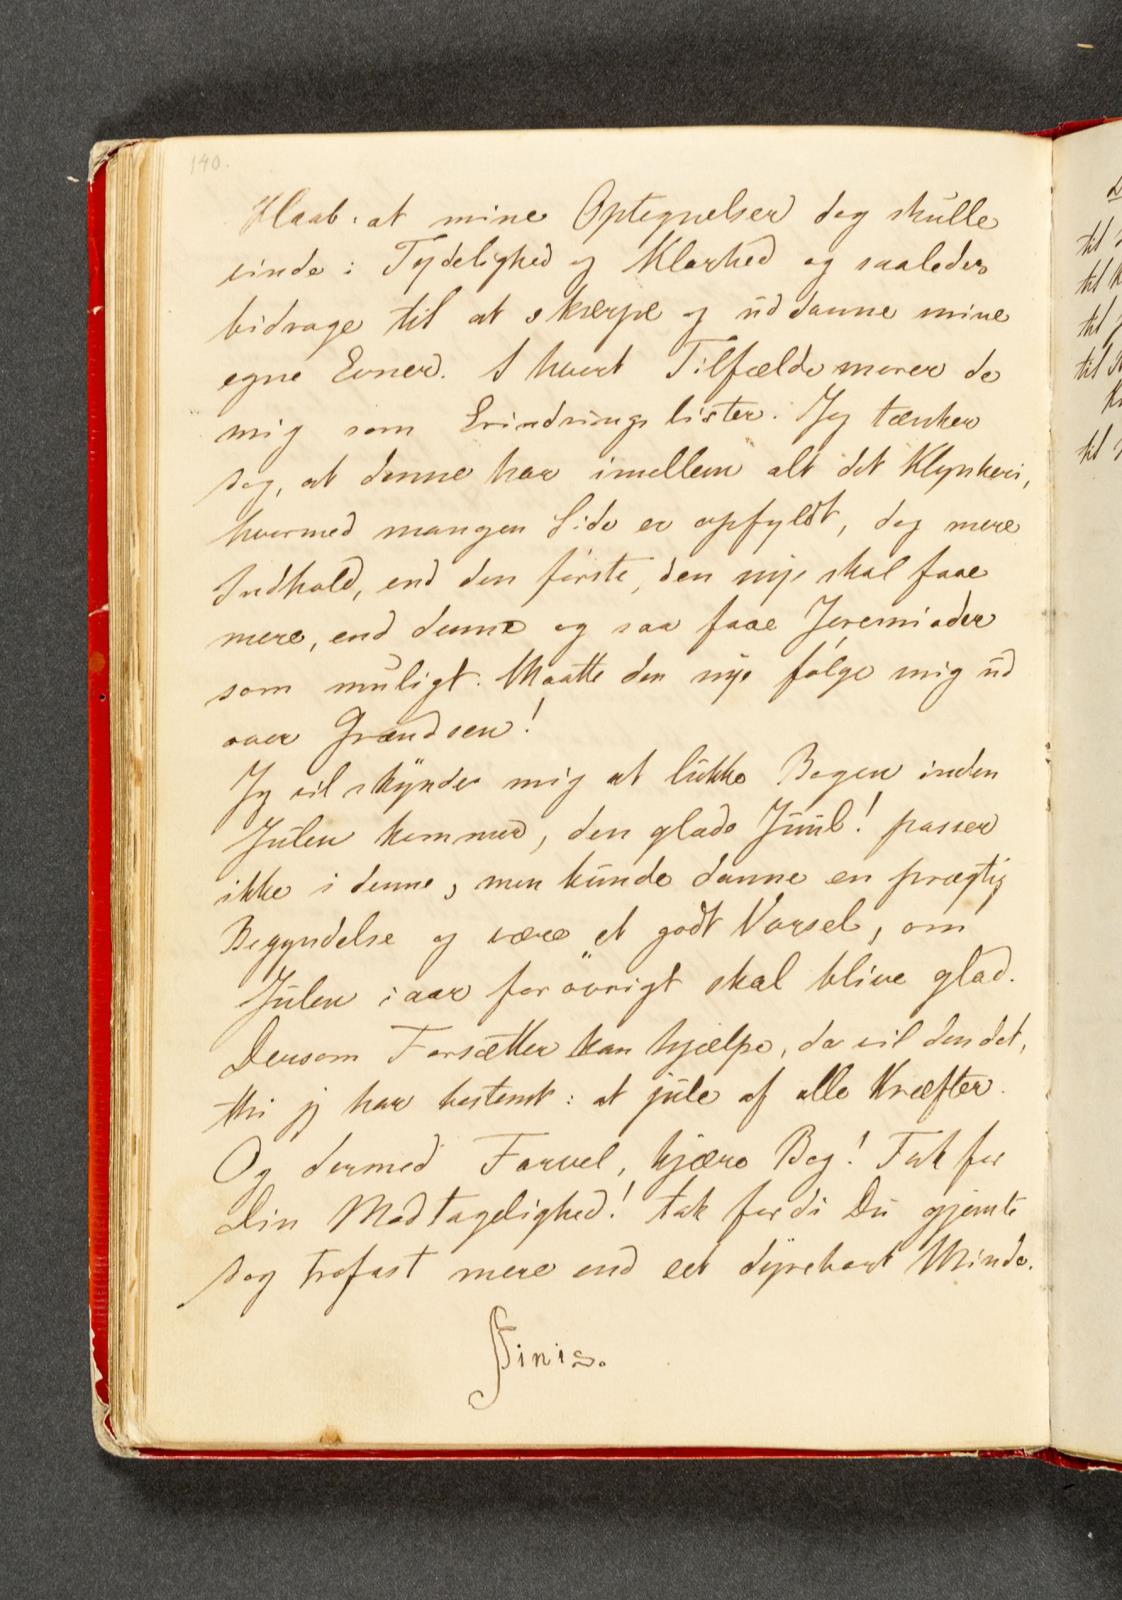 140.
Haab: at mine Optegnelser dog skulle
vinde i Tydelighed og Klarhed og saaledes
bidrage til at skærpe og uddanne mine
egne Evner. I hvert Tilfælde morer de
mig som Erindrings lister. Jeg tænker
dog, at denne har imellem alt det Klynkeri,
hvormed mangen Side er opfyldt, dog mere
Indhold, end den förste, den nye skal faae
mere, end denne og saa faae Jeremiader
som muligt. Maatte den nye følge mig ud
over Grændsen!
Jeg vil skynde mig at lukke Bogen inden
Julen kommer, den glade Juul! passer
ikke i denne, men kunde danne en prægtig
Begyndelse og være et godt Varsel, om
Julen iaar forövrigt skal blive glad.
Dersom Forsætter kan hjælpe, da vil den det,
thi jeg har bestemt: at jule af alle Kræfter.
Og dermed Farvel, kjære Bog! Tak for
Din Modtagelighed! tak fordi Du gjemte
dog trofast mere end eet dyrebart Minde.
Finis.
til
til
til
til
til